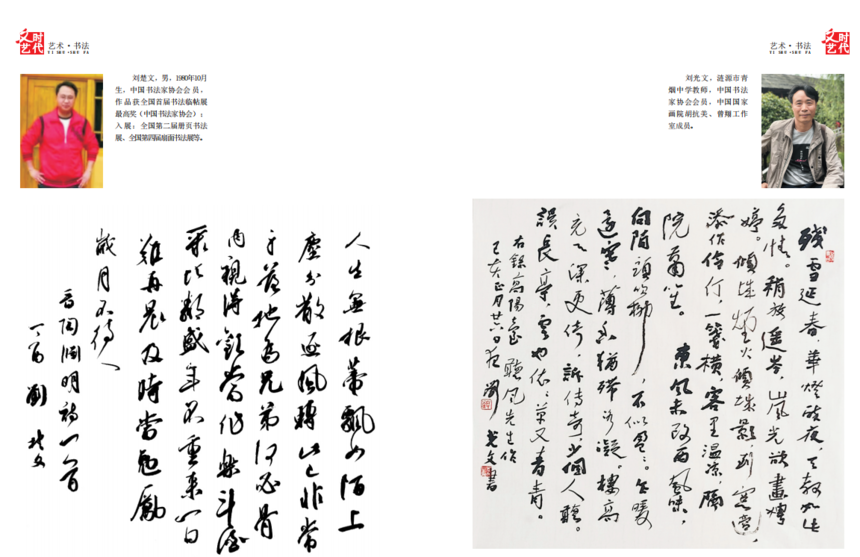 文艺
时代
艺术·书法
YI SHU·SHU FA
刘楚文，男，1980年10月
生，中国书法家协会会员，
作品获全国首届书法临帖展
最高奖（中国书法家协会）；
入展：全国第二届册页书法
展、全国第四届扇面书法展等。
人生无根蒂飘如陌上
尘分散逐风转此已非常
身落地为兄弟何必骨
肉亲得欢当作乐斗酒
聚比邻盛年不重来一日
难再晨及时当勉励
岁月不待人
陶渊明诗一首
丁酉 刘楚文
文艺
时代
艺术·书法
YI SHU·SHU FA
刘光文，涟源市青
烟中学教师，中国书法
家协会会员，中国国家
画院胡抗美、曾翔工作
室成员。
残雪延春，华灯破夜，天教如此
多情。稍放遥岑，岚光欲画
婷。倾城烟火倾城影，到
添作伶仃，一筝横，客里温凉，隔
院萧笙。 东风未改西
向陌头吹柳，不似
寒，薄
更深
误长亭，云也依依，草又青青。
右录高阳台 听风先生作
己亥正月廿六日 刘光文书